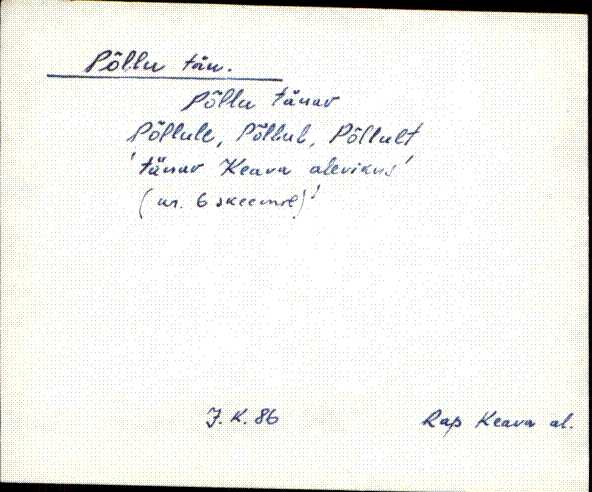 Põllu tän.
Põllu tänav
Põllule, Põllul, Põllult
'tänav Keava alevikus'
(nr. 6 skeemil)'
J. K. 86
Rap Keava al.